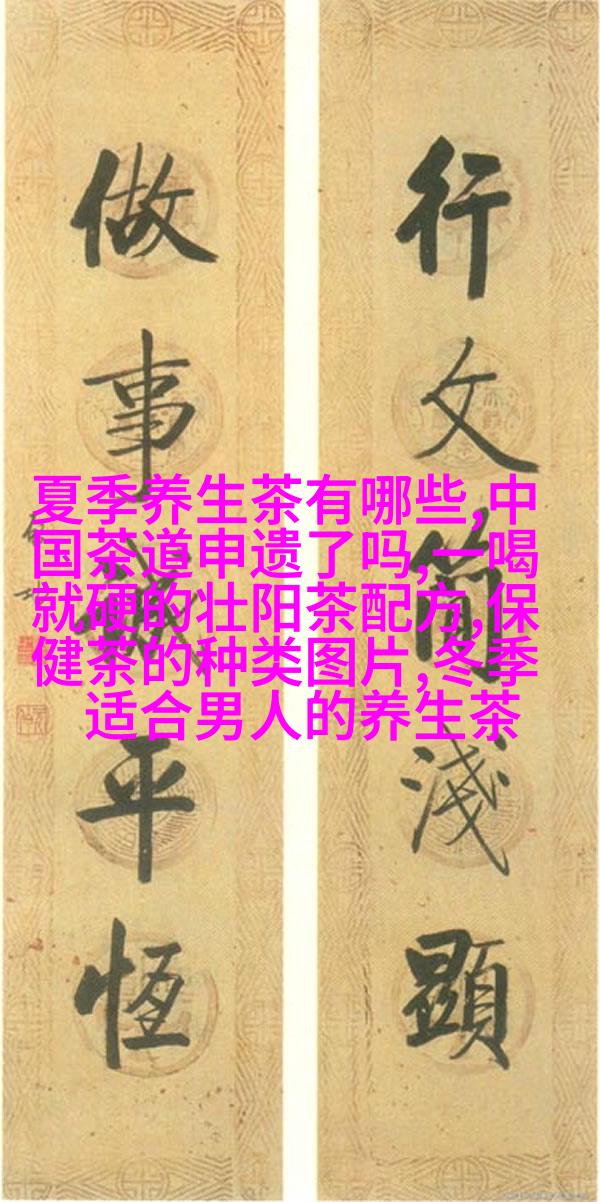 行文簡淺顯
做事誠平恆
夏季养生茶有哪些,中
国茶道申遗了吗,一喝
就硬的壮阳茶配方,保
健茶的种类图片,冬季
适合男人的养生茶